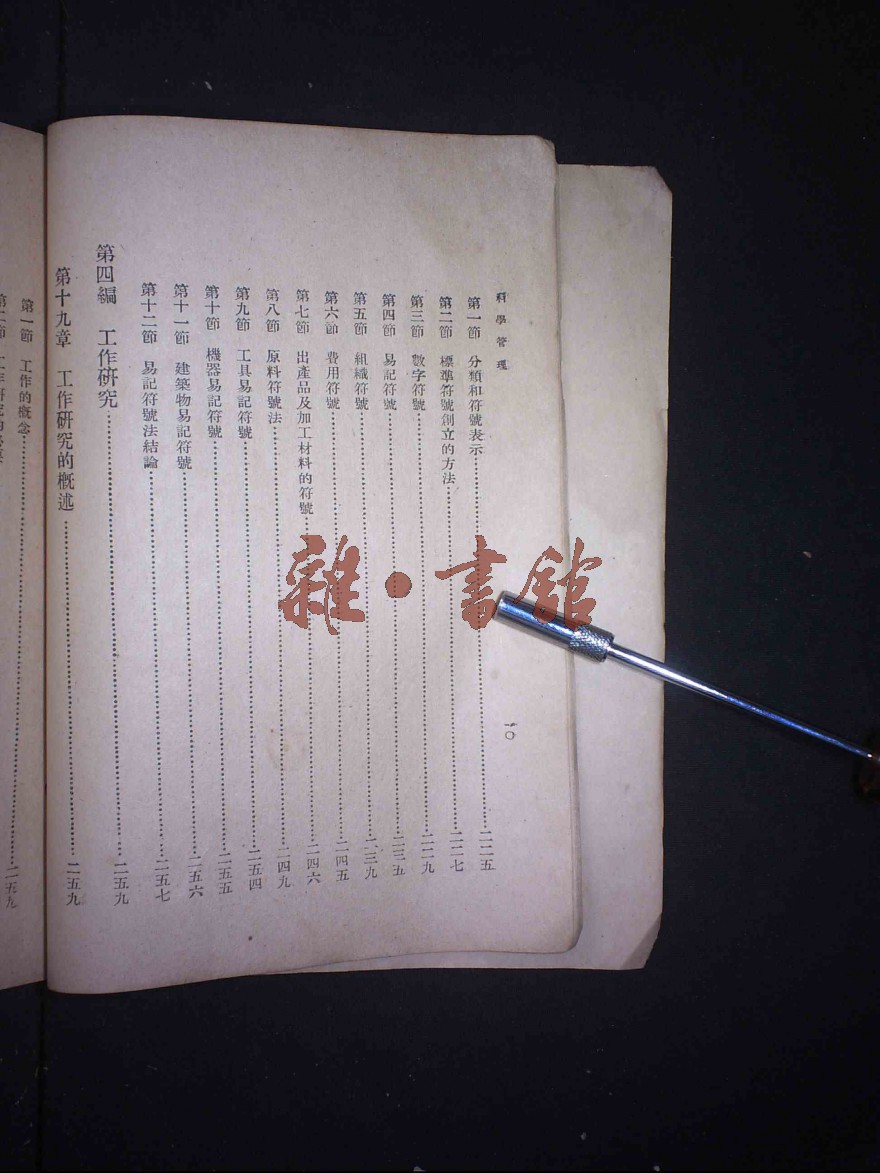 科學管理
一〇
第一節 分類和符號表示……二二五
第二節 標準符號創立的方法……二二七
第三節 數字符號……二二九
第四節 易記符號……二三五
第五節 組織符號……二三九
第六節 費用符號……二四五
第七節 出產品及加工材料的符號……二四六
第八節 原料符號法……二四九
第九節 工具易記符號……二五四
第十節 機器易記符號……二五五
第十一節 建築物易記符號……二五六
第十二節 易記符號法結論……二五七
第四編 工作研究……二五九
第十九章 工作研究的概述……二五九
第一節 工作的概念……二五九
第二節 工作研究的
雜·書館